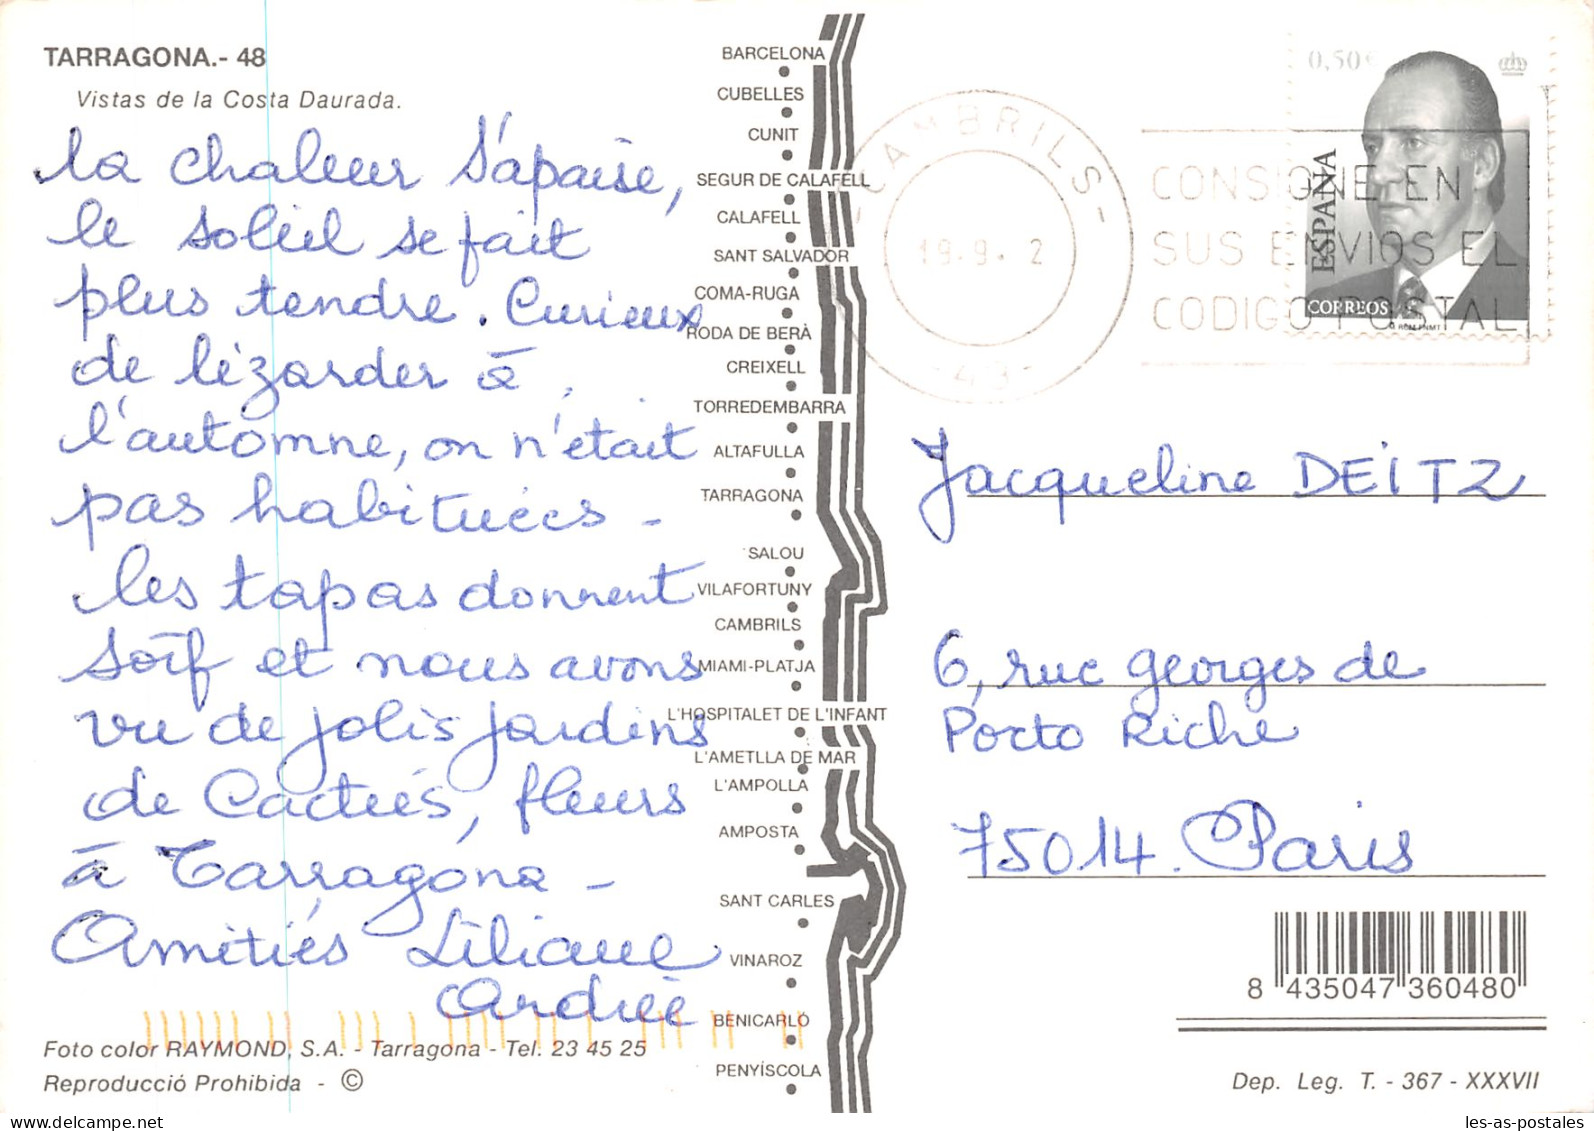 TARRAGONA.- 48
Vistas de la Costa Daurada.
La chaleur s'apaise,
le soleil se fait
plus tendre. Curieux
de lézarder à
l'automne, on n'était
pas habituées -
Les tapas donnent
soif et nous avons
vu de jolis jardins
de Cactées, fleurs
à Tarragona -
Amitiés Liliane
Andrée
Foto color RAYMOND, S.A. - Tarragona - Tel. 23 45 25
Reproducció Prohibida - ©
BARCELONA
CUBELLES
CUNIT
SEGUR DE CALAFELL
CALAFELL
SANT SALVADOR
COMA-RUGA
RODA DE BERÀ
CREIXELL
TORREDEMBARRA
ALTAFULLA
TARRAGONA
SALOU
VILAFORTUNY
CAMBRILS
MIAMI-PLATJA
L'HOSPITALET DE L'INFANT
L'AMETLLA DE MAR
L'AMPOLLA
AMPOSTA
SANT CARLES
VINAROZ
BENICARLÓ
PENYÍSCOLA
-CAMBRILS-
19.9. 2
-43-
CONSIGNE EN
SUS ENVIOS EL
CODIGO POSTAL
0,50€
ESPAÑA
CORREOS
RCM FNMT
Jacqueline DEITZ
6, rue georges de
Porto Riche
75014. Paris
8 435047 360480
Dep. Leg. T. - 367 - XXXVII
les-as-postales